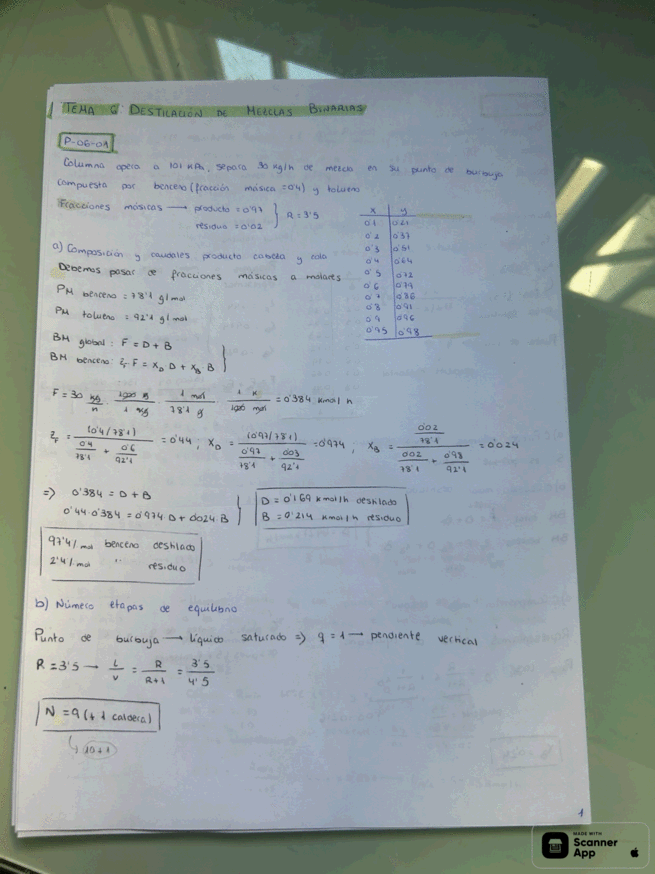 TEMA 6: DESTILACIÓN DE MEZCLAS BINARIAS
P-06-01
Columna opera a 101 KPa, separa 30 Kg/h de mezcla en su punto de burbuja
compuesta por benceno (fracción másica = 0'4) y tolueno
Fracciones másicas → producto = 0'97 } R = 3'5
residuo = 0'02
x y
0'1 0'21
0'2 0'37
0'3 0'51
0'4 0'64
0'5 0'72
0'6 0'79
0'7 0'86
0'8 0'91
0'9 0'96
0'95 0'98
a) Composición y caudales producto cabeza y cola
Debemos pasar de fracciones másicas a molares
PM benceno = 78'1 g/mol
PM tolueno = 92'1 g/mol
BM global: F = D + B
BM benceno: z_F F = x_D D + x_B B
F = 30 kg/h · 1000 g/1 kg · 1 mol/78'1 g · 1 K/1000 mol = 0'384 kmol/h
z_F = (0'4/78'1) / (0'4/78'1 + 0'6/92'1) = 0'44, x_D = (0'97/78'1) / (0'97/78'1 + 0'03/92'1) = 0'974, x_B = (0'02/78'1) / (0'02/78'1 + 0'98/92'1) = 0'024
=> 0'384 = D + B
0'44·0'384 = 0'974 D + 0'024 B
D = 0'169 kmol/h destilado
B = 0'214 kmol/h residuo
97'4% mol benceno destilado
2'4% mol " residuo
b) Número etapas de equilibrio
Punto de burbuja → líquido saturado => q = 1 → pendiente vertical
R = 3'5 → L/V = R/R+1 = 3'5/4'5
N = 9 (+ 1 caldera)
↳ 10 + 1
1
MADE WITH
Scanner
App